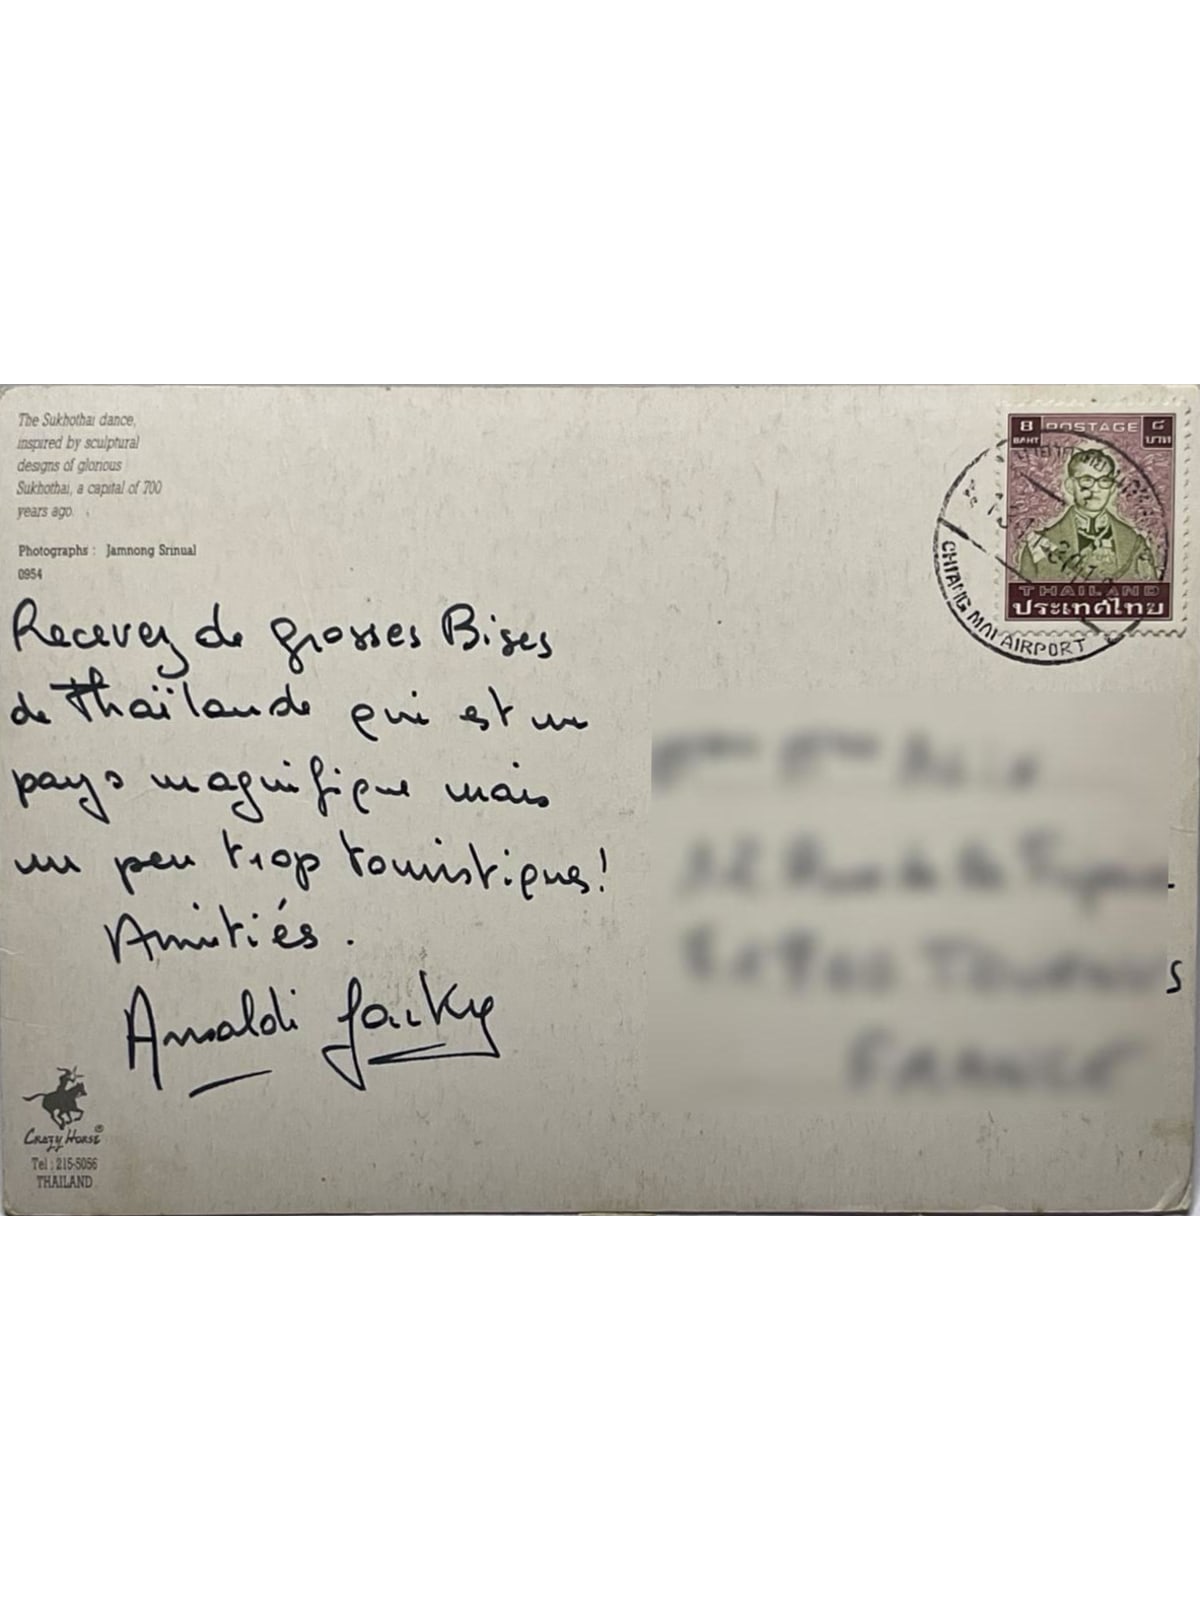 The Sukhothai dance,
inspired by sculptural
designs of glorious
Sukhothai, a capital of 700
years ago.
Photographs : Jamnong Srinual
0954
8 POSTAGE ๘
BAHT บาท
THAILAND
ประเทศไทย
CHIANG MAI AIRPORT
Recevez de grosses Bises
de Thaïlande qui est un
pays magnifique mais
un peu trop touristique!
Amitiés.
Ansaldi Jacky
FRANCE
Crazy Horse®
Tel : 215-5056
THAILAND